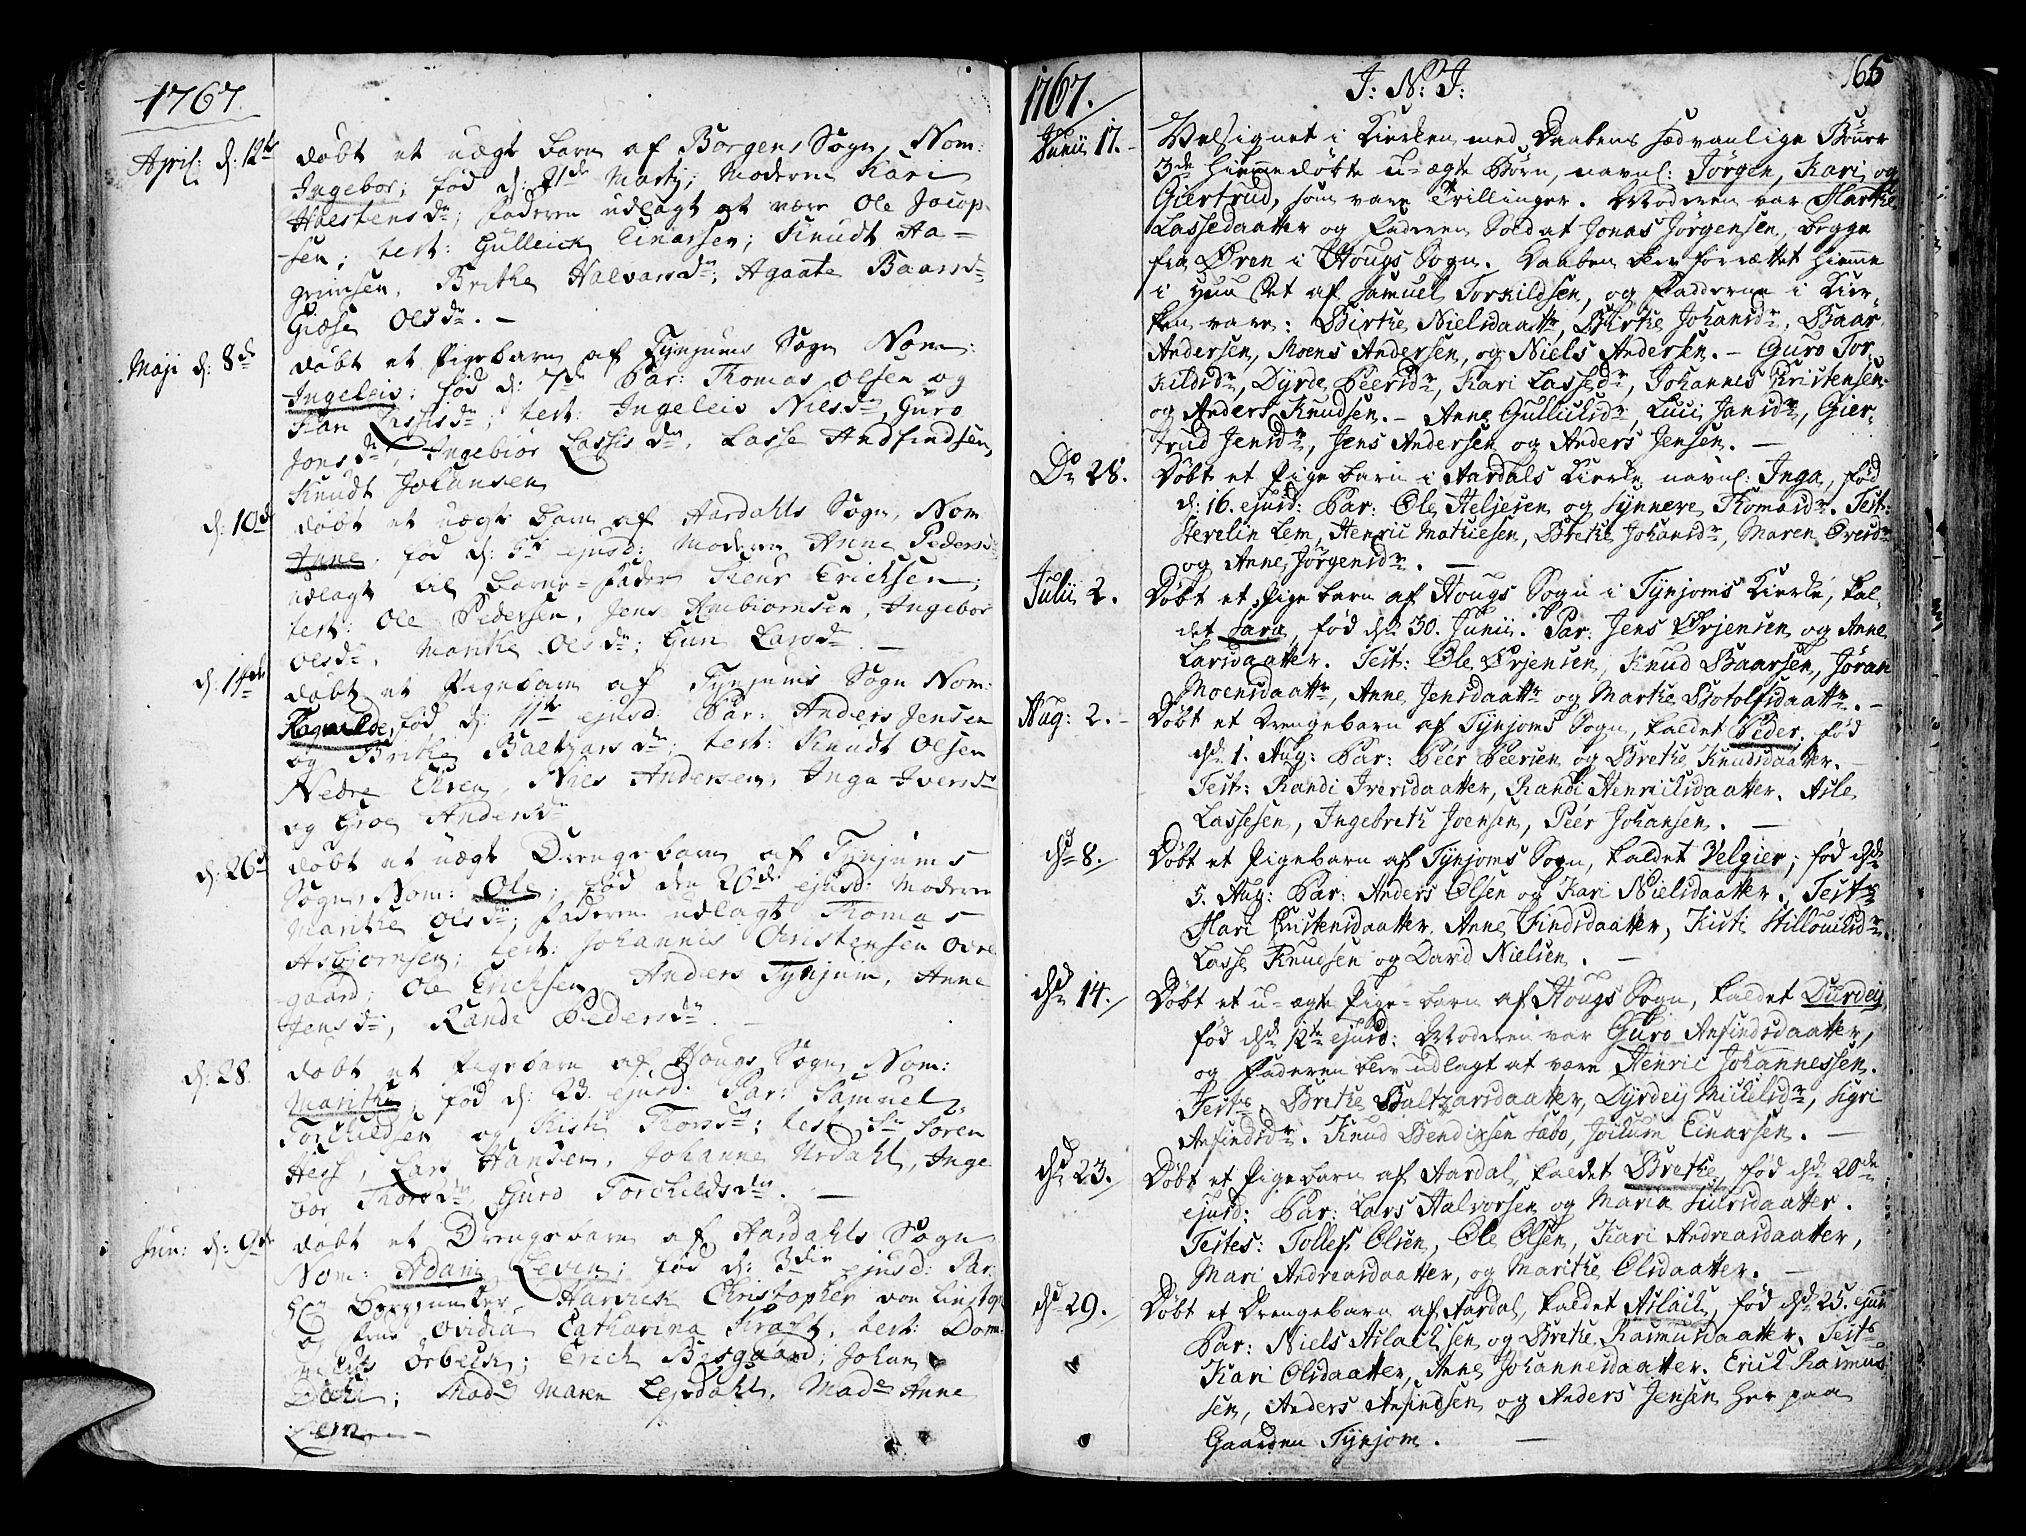 1767.
April: d: 12te døbt et uægt barn af Borgens Sogn, Nom:
Ingebor; fød d: 21de Martj; Moderen Kari
Holstensdr; Faderen udlagt at være Ole Jocop-
sen; test: Gulleick Einarsen; Knudt Aa-
grimsen, Brithe Halvarsdr; Agaate Baarsdr
Giøse Olsdr. -
Maji d: 8de døbt et Pigebarn af Tynjums Sogn Nom:
Ingeleis; fød d: 7de Par: Thomas Olsen og
Kari Lassisdr; test: Ingeleis Nilsdr, Guro
Jonsdr, Ingebior Lassisdr, Lasse Andfindsen,
Knudt Johansen
d: 10de døbt et uægt barn af Aardahls Sogn, Nom
Anne. fød d: 5te ejusd: Moderen Anne Pedersdr
udlagt til barne-Fader Siur Ericksen;
test: Ole Pedersen, Jens Anbiørnsen, Ingebor
Olsdr, Marithe Olsdr; Guri Larsdr. -
d: 14de døbt et Pigebarn af Tynjums Sogn Nom:
Ragnilde, fød d: 11te ejusd: Par: Anders Jensen
og Brithe Baltzarsdr; test: Knudt Olsen
Nedre Eren, Niels Andersen, Inga Iversdr
og Groe Andersdr
d: 26de døbt et uægt Drengebarn af Tynjums
Sogn, Nom: Ole; fød den 26de ejusd: Moderen
Marithe Olsdr; Faderen udlagt Thomas
Asbiørnsen; test: Johannis Christensen Øvre
gaard; Ole Ericksen, Anders Tynjum, Anne
Jensdr, Randi Pedersdr. -
d: 28. døbt et Pigebarn af Hougs Sogn Nom:
Marithe, fød d: 23. ejusd: Par: Samuel
Torchildsen og Kisti Thorsdr; test: Sr Søren
Hess, Lars Hansen, Johanne Urdahl, Inge
bor Thorsdr, Guro Torchildsdr. -
Jun: d: 9de døbt et Drengebarn af Aardahls Sogn
Nom: Adam Leven; fød d: 3die ejusd: Par:
Hr Harvick Christopher von Linstop
og Frue Ovidia Catharina Kraft, test: Dom:
Ørbeck; Erick Bisgaard; Johan
Dahl; Made Maren Lejrdahl, Made Anne

1767. J: N: J: 165
Junii 17. - Velsignet i Kierken med Daabens sædvanlige Bønner
3de hiemmedøbte u-ægte Børn, navnl: Jørgen, Kari og
Giertrud, som vare Trillinger. Moderen var Marthe
Lassedaatter og Faderen Soldat Jonas Jørgensen, begge
fra Øren i Hougs Sogn. Daaben blev forrættet hiemme
i Huuset af Samuel Torkildsen, og Fadderne i Kier-
ken vare: Birthe Nielsdaattr, Birthe Johansdr, Baar
Andersen, Moens Andersen, og Niels Andersen. - Guro Tor-
kildsdr, Dyrde Peersdr, Kari Lassedr, Johannes Kristensen
og Anders Knudsen. - Anne Gulliksdr, Luci Jansdr, Gier-
trud Jensdr, Jens Andersen og Anders Jensen. -
Do 28. Døbt et Pige barn i Aardals Kierke, navnl: Inga, fød
d: 16. ejusd: Par: Ole Heljesen og Synneve Thomasdr. Test:
Severin Lem, Henric Mathiesen, Brethe Johansdr, Maren Oversdr
og Anne Jørgensdr. -
Julii 2. Døbt et Pige barn af Hougs Sogn i Tynjoms Kierke, kal-
det Sara, fød dn 30. Junii. Par: Jens Ørjensen og Anne
Larsdaatter. Test: Ole Ørjensen, Knud Baarsen, Jøran
Moensdaattr, Anne Jensdaattr og Marthe Botolfsdaattr. -
Aug: 2. - Døbt et Drengebarn af Tynjoms Sogn, kaldet Peder, fød
dn 1. Aug: Par: Peer Peersen og Brethe Knudsdaatter. -
Test: Randi Iversdaatter, Randi Henriksdaatter. Asle
Lassesen, Ingebreth Joensen, Peer Johansen. -
dn 8. Døbt et Pigebarn af Tynjoms Sogn, kaldet Velgier; fød dn
5. Aug: Par: Anders Olsen og Kari Nielsdaatter. Tests
Mari Kristensdaatter, Anne Findsdaatter, Kisti Stillouksdr.
Lasse Knudsen og David Nielsen. -
dn 14. Døbt et u-ægte Pige-barn af Hougs Sogn, kaldet Durdey
fød dn 12te ejusd: Moderen var Guro Anfindsdaatter,
og Faderen blev udlagt at være Henric Johannessen.
Tests: Brethe Baltzarsdaatter, Dyrdey Mickelsdr, Sigri
Anfindsdr. Knud Bendixsen Sæbo, Joikum Einarsen. -
dn 23. Døbt et Pigebarn af Aardal, kaldet Brethe, fød dn 20de
ejusd: Par: Lars Halvorsen og Maria Siursdaatter.
Testes: Tollef Olsen, Ole Olsen, Kari Andreasdaatter,
Mari Andreasdaatter, og Marithe Olsdaatter. -
dn 29. Døbt et Drengebarn af Aardal, kaldet Aslack, fød dn 25. ejusd
Par: Niels Aslachsen og Brethe Rasmusdaatter. Tests
Kari Olsdaatter, Anne Johannesdaatter. Erick Rasmus
sen, Anders Anfindsen og Anders Jensen her paa
Gaarden Tynjom. -